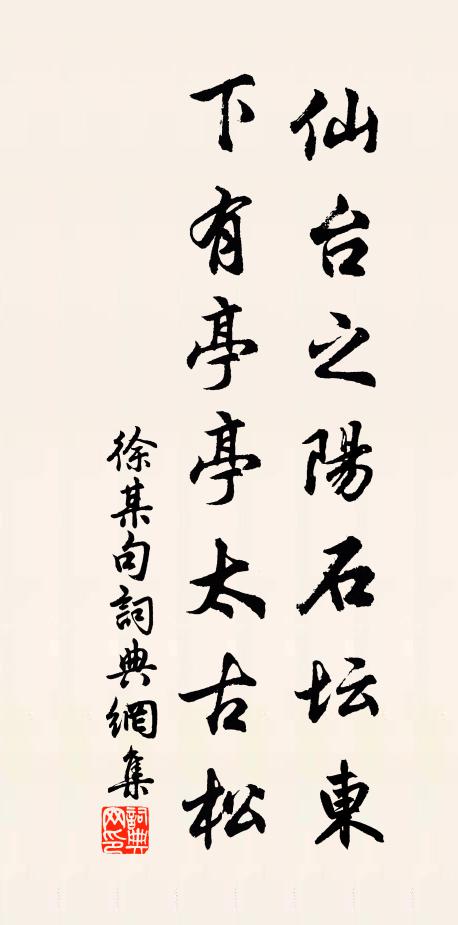 仙台之陽石坛東
下有亭亭太古松
徐某句詞典網集
詞典网印